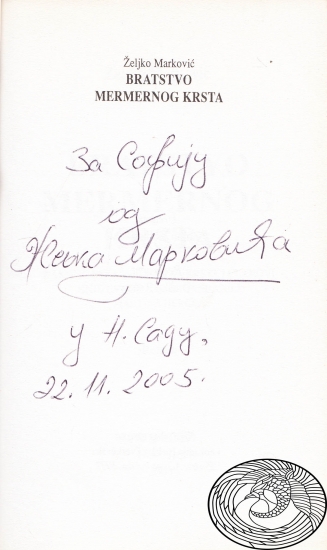 Željko Marković
BRATSTVO
MERMERNOG KRSTA
За Софију
од
Жељка Марковића
у Н. Саду,
22. 11. 2005.